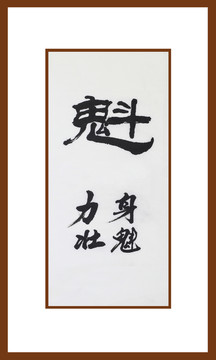 魁
身魁
力壮